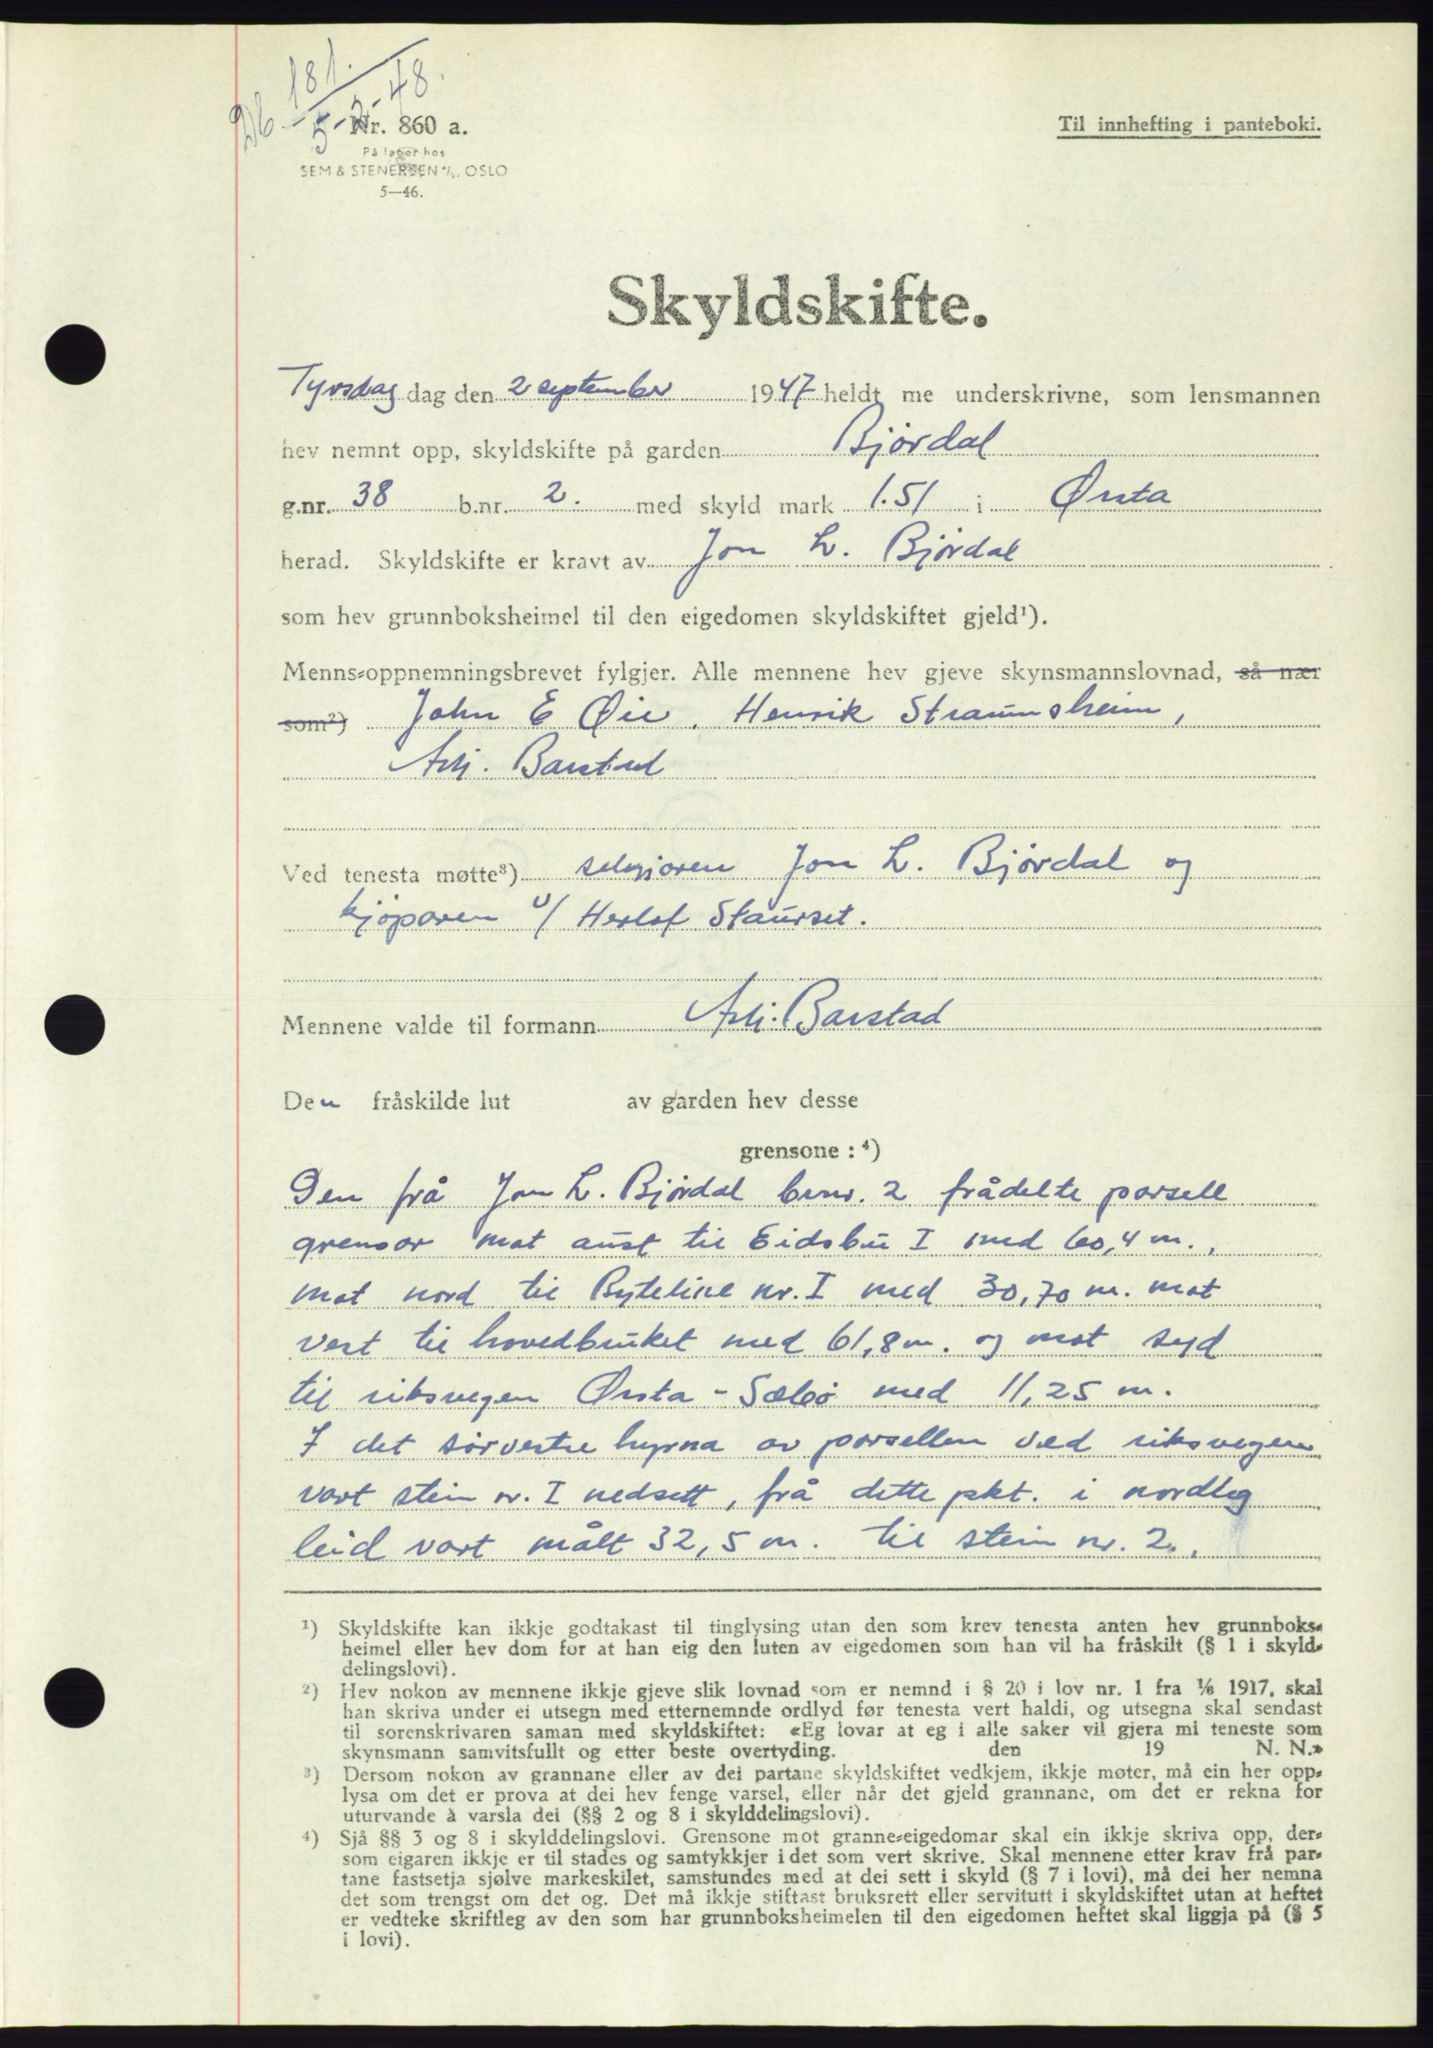 Db. 181.
5-2-48.
Nr. 860 a.
På lager hos
SEM & STENERSEN A/S. OSLO
5—46.
Til innhefting i panteboki.
Skyldskifte.
Tyrsdag dag den 2 september 1947 heldt me underskrivne, som lensmannen
hev nemnt opp, skyldskifte på garden Bjørdal
g.nr. 38 b.nr. 2. med skyld mark 1.51 i Ørsta
herad. Skyldskifte er kravt av Jon L. Bjørdal
som hev grunnboksheimel til den eigedomen skyldskiftet gjeld¹).
Menns-oppnemningsbrevet fylgjer. Alle mennene hev gjeve skynsmannslovnad, så nær
som²) John E Øie, Henrik Straumsheim,
Asbj. Barstad
Ved tenesta møtte³) seljaren Jon L. Bjørdal og
kjøparen v/ Herlof Staurset.
Mennene valde til formann Asbj. Barstad
Den fråskilde lut av garden hev desse
grensone : ⁴)
Den frå Jon L. Bjørdal bnr. 2 frådelte parsell
grensar mot aust til Eidsbu I med 60,4 m.,
mot nord til Byteline nr. I med 30,70 m. mot
vest til hovedbruket med 61,8 m. og mot syd
til riksvegen Ørsta - Sæbø med 11,25 m.
I det sørvestre hyrna av parsellen ved riksvegen
vart stein nr. I nedsett, frå dette pkt. i nordleg
leid vart målt 32,5 m. til stein nr. 2.,
¹) Skyldskifte kan ikkje godtakast til tinglysing utan den som krev tenesta anten hev grunnboks-
heimel eller hev dom for at han eig den luten av eigedomen som han vil ha fråskilt (§ 1 i skyld-
delingslovi).
²) Hev nokon av mennene ikkje gjeve slik lovnad som er nemnd i § 20 i lov nr. 1 fra 1/6 1917, skal
han skriva under ei utsegn med etternemnde ordlyd før tenesta vert haldi, og utsegna skal sendast
til sorenskrivaren saman med skyldskiftet: «Eg lovar at eg i alle saker vil gjera mi teneste som
skynsmann samvitsfullt og etter beste overtyding. den 19 N. N.»
³) Dersom nokon av grannane eller av dei partane skyldskiftet vedkjem, ikkje møter, må ein her opp-
lysa om det er prova at dei hev fenge varsel, eller når det gjeld grannane, om det er rekna for
uturvande å varsla dei (§§ 2 og 8 i skylddelingslovi).
⁴) Sjå §§ 3 og 8 i skylddelingslovi. Grensone mot granne-eigedomar skal ein ikkje skriva opp, der-
som eigaren ikkje er til stades og samtykkjer i det som vert skrive. Skal mennene etter krav frå par-
tane fastsetja sjølve markeskilet, samstundes med at dei sett i skyld (§ 7 i lovi), må dei her nemna
det som trengst om det og. Det må ikkje stiftast bruksrett eller servitutt i skyldskiftet utan at heftet
er vedteke skriftleg av den som har grunnboksheimelen til den eigedomen heftet skal liggja på (§ 5
i lovi).